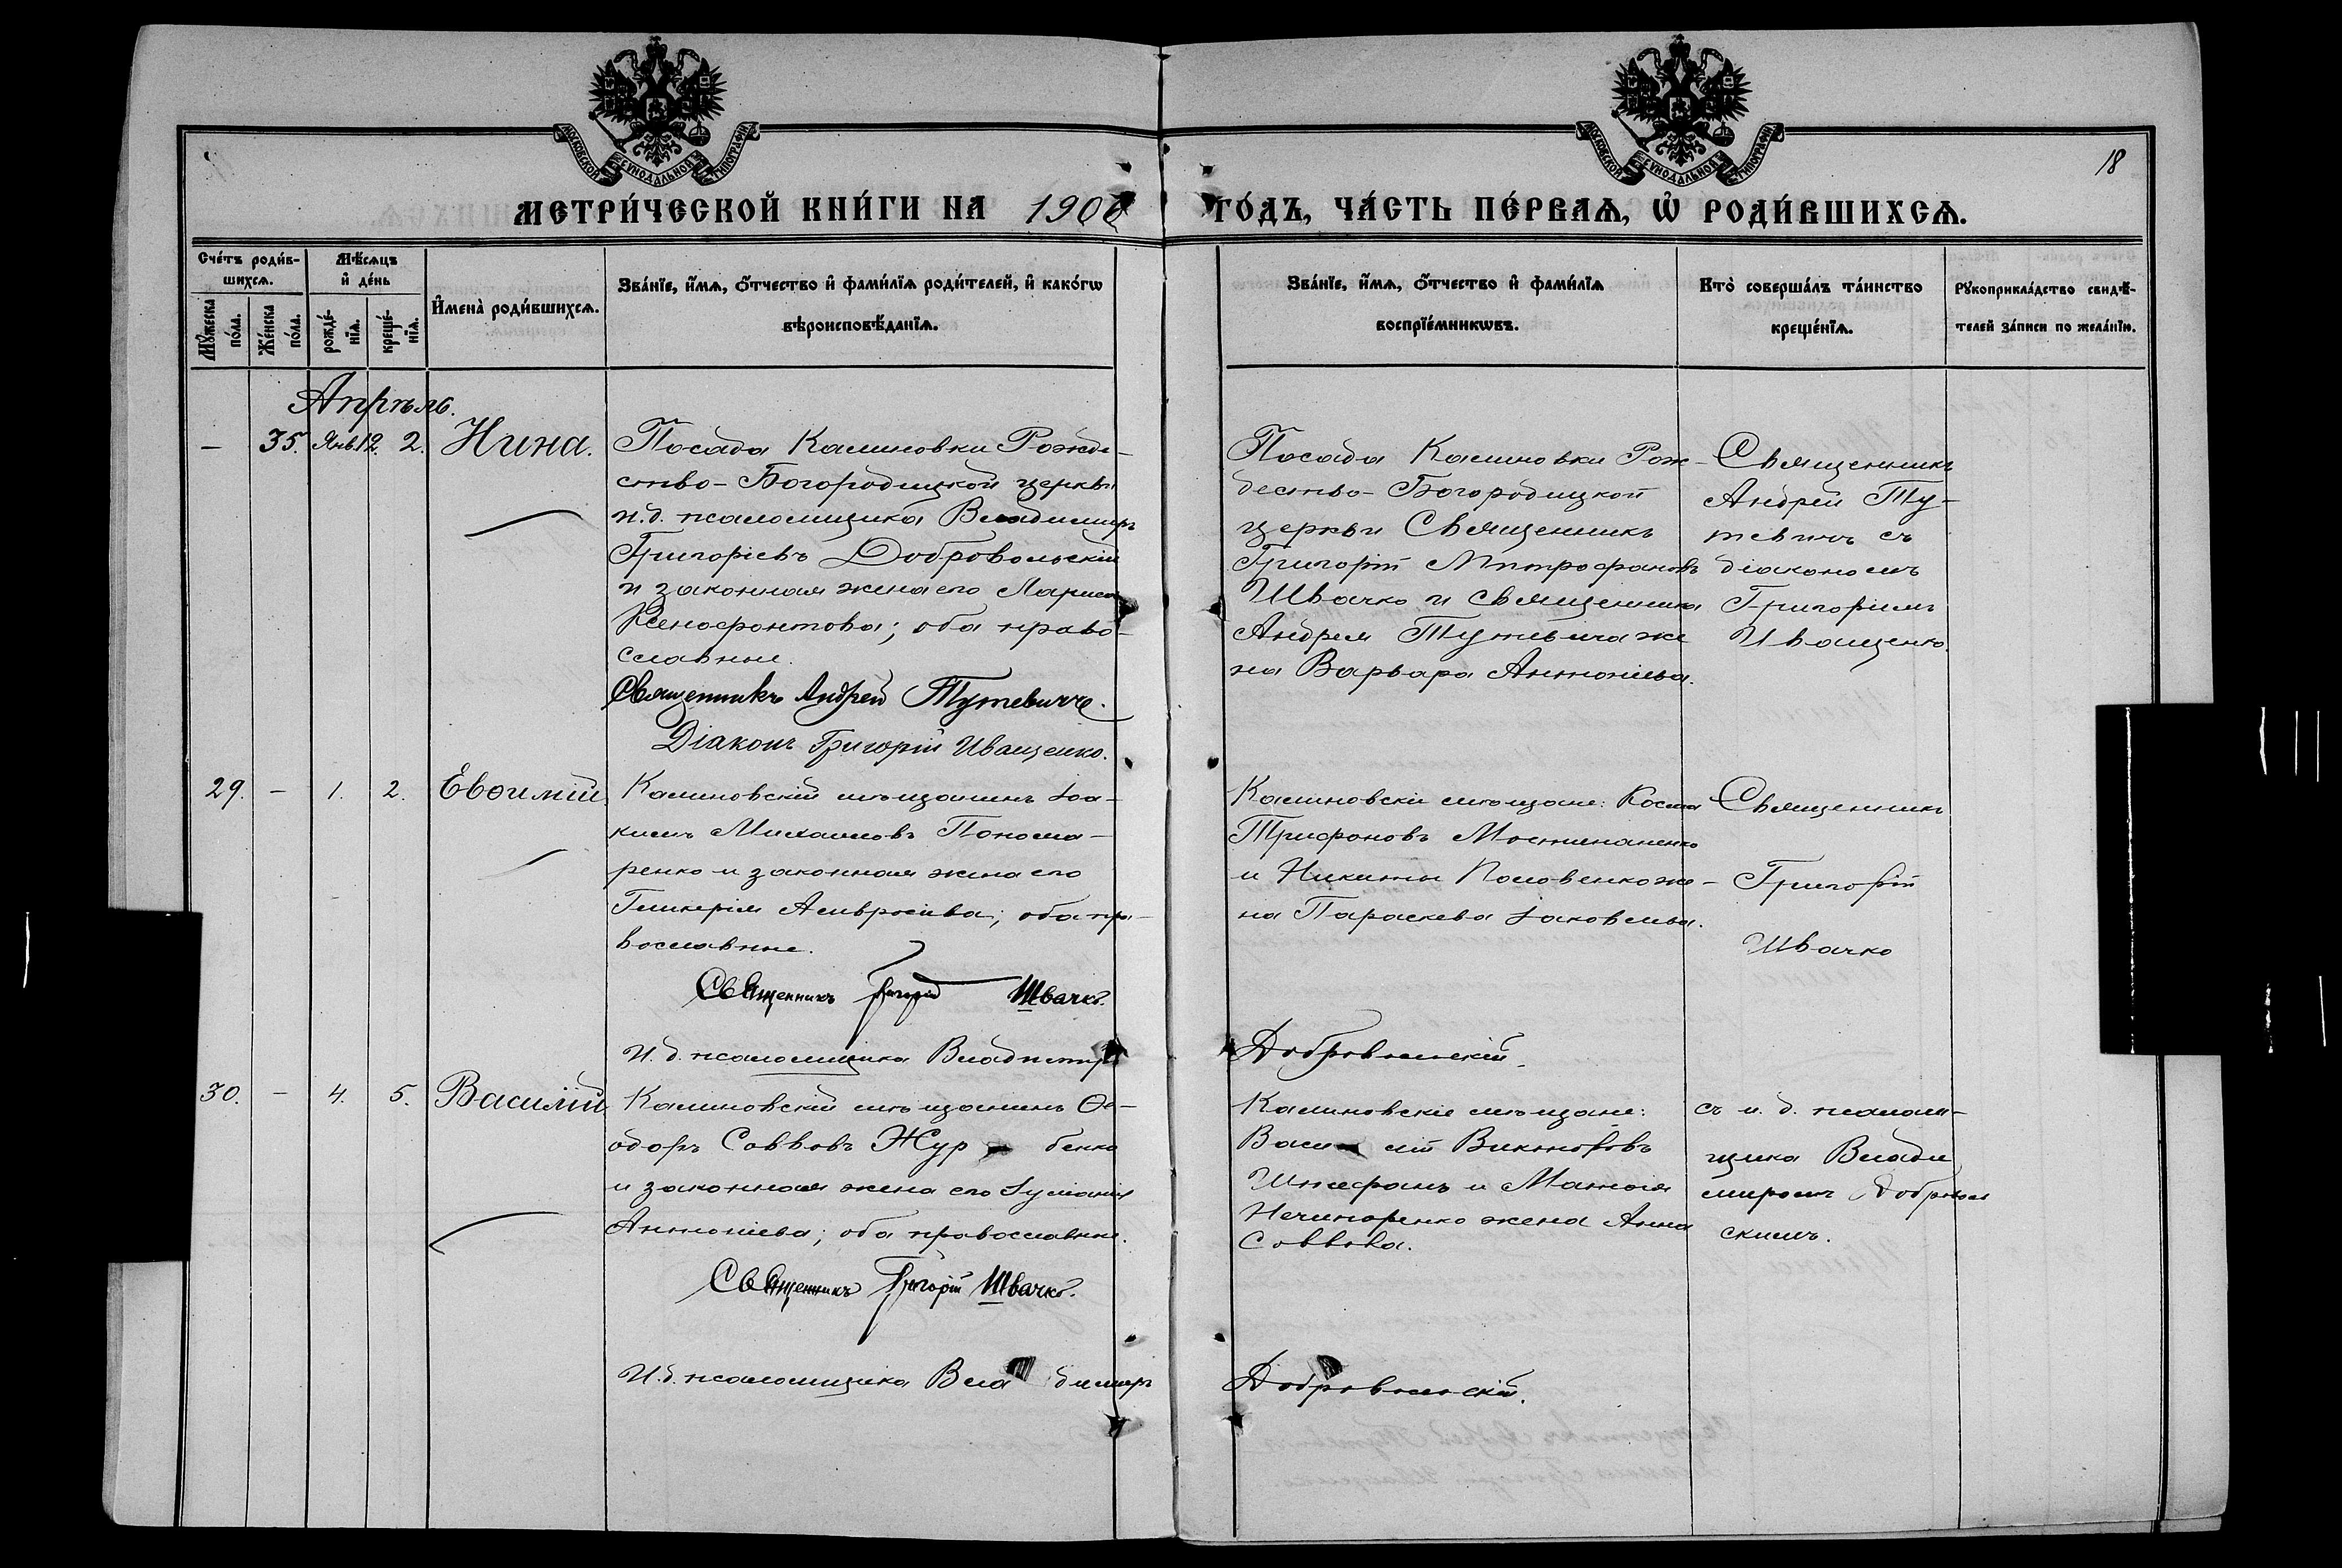 МОСКОВСКОЙ СѴНОДАЛЬНОЙ ТИПОГРАФІИ
МОСКОВСКОЙ СѴНОДАЛЬНОЙ ТИПОГРАФІИ
18
МЕТРИ́ЧЕСКОЙ КНИ́ГИ НА 1906 ГО́ДЪ, ЧА́СТЬ ПЕ́РВАѦ, Ѡ РОДИ́ВШИХСѦ.
Сче́тъ роди́в-
шихсѧ.
Мꙋ́жеска по́ла.
Же́нска по́ла.
Мѣ́сѧцъ и҆ де́нь
рожде́нїѧ.
креще́нїѧ.
И҆мена̀ роди́вшихсѧ.
Зва́нїе, и҆́мѧ, ѻ҆́тчество и҆ фами́лїѧ роди́телей, и҆ како́гѡ
вѣроисповѣ́данїѧ.
Зва́нїе, и҆́мѧ, ѻ҆́тчество и҆ фами́лїѧ
воспрїе́мникѡвъ.
Кто̀ соверша́лъ та́инство
креще́нїѧ.
Рꙋкоприкла́дство свидѣ́-
телей за́писи по жела́нїю.
Апрѣль.
— 35. Янв.12. 2. Нина.
Посада Калиновки Рожде-
ство-Богородицкой церкви
и.д. псаломщика Владимиръ
Григоріевъ Добровольскій
и законная жена его Лариса
Ксенофонтова; оба право-
славные.
Священникъ Андрей Тутевичъ.
Діаконъ Григорій Иващенко.
Посада Калиновки Рож-
дество-Богородицкой
церкви Священникъ
Григорій Митрофановъ
Швачко и священника
Андрея Тутевича же
на Варвара Антоніева.
Священникъ
Андрей Ту-
тевичъ съ
діакономъ
Григоріемъ
Иващенко.
29. — 1. 2. Евѳимій.
Калиновскій мѣщанинъ Іоа-
кимъ Михаиловъ Понома-
ренко и законная жена его
Гликерія Амвросіева; оба пра-
вославные.
Священникъ Григорій Швачко.
И.д. псаломщика Владимиръ Добровольскій.
Калиновскіе мѣщане: Косма
Трифоновъ
и Никиты Половенко же-
на Параскева Іаковлева.
Священникъ
Григорій
Швачко
30. — 4. 5. Василій
Калиновскій мѣщанинъ Ѳе-
одоръ Саввовъ Жур бенко
и законная жена его Іуліанія
Антоніева; оба православные.
Священникъ Григорій Швачко.
И.д. псаломщика Вла димиръ Добровольскій.
Калиновскіе мѣщане:
Васи лій Викторовъ
и Матѳія
Нечипоренко жена Анна
Саввова.
съ и. д. псалом-
щика Влади
миромъ Добровол
скимъ.